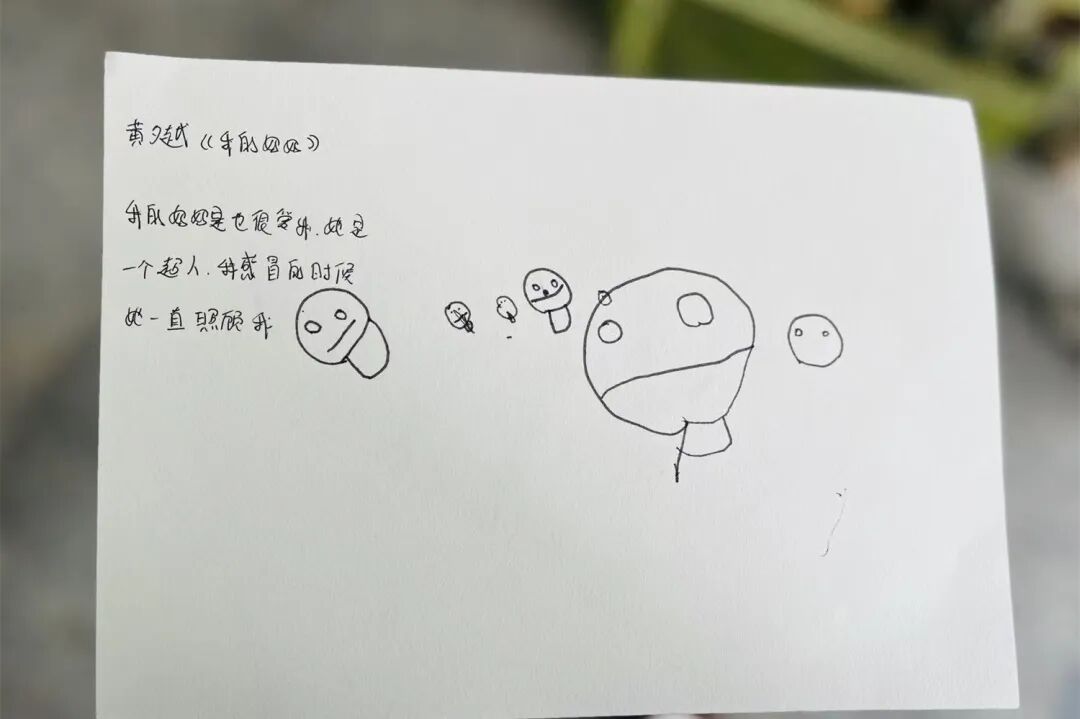 黄夕越《我的妈妈》
我的妈妈是也很爱我.她是
一个超人.我感冒的时候
她一直照顾我